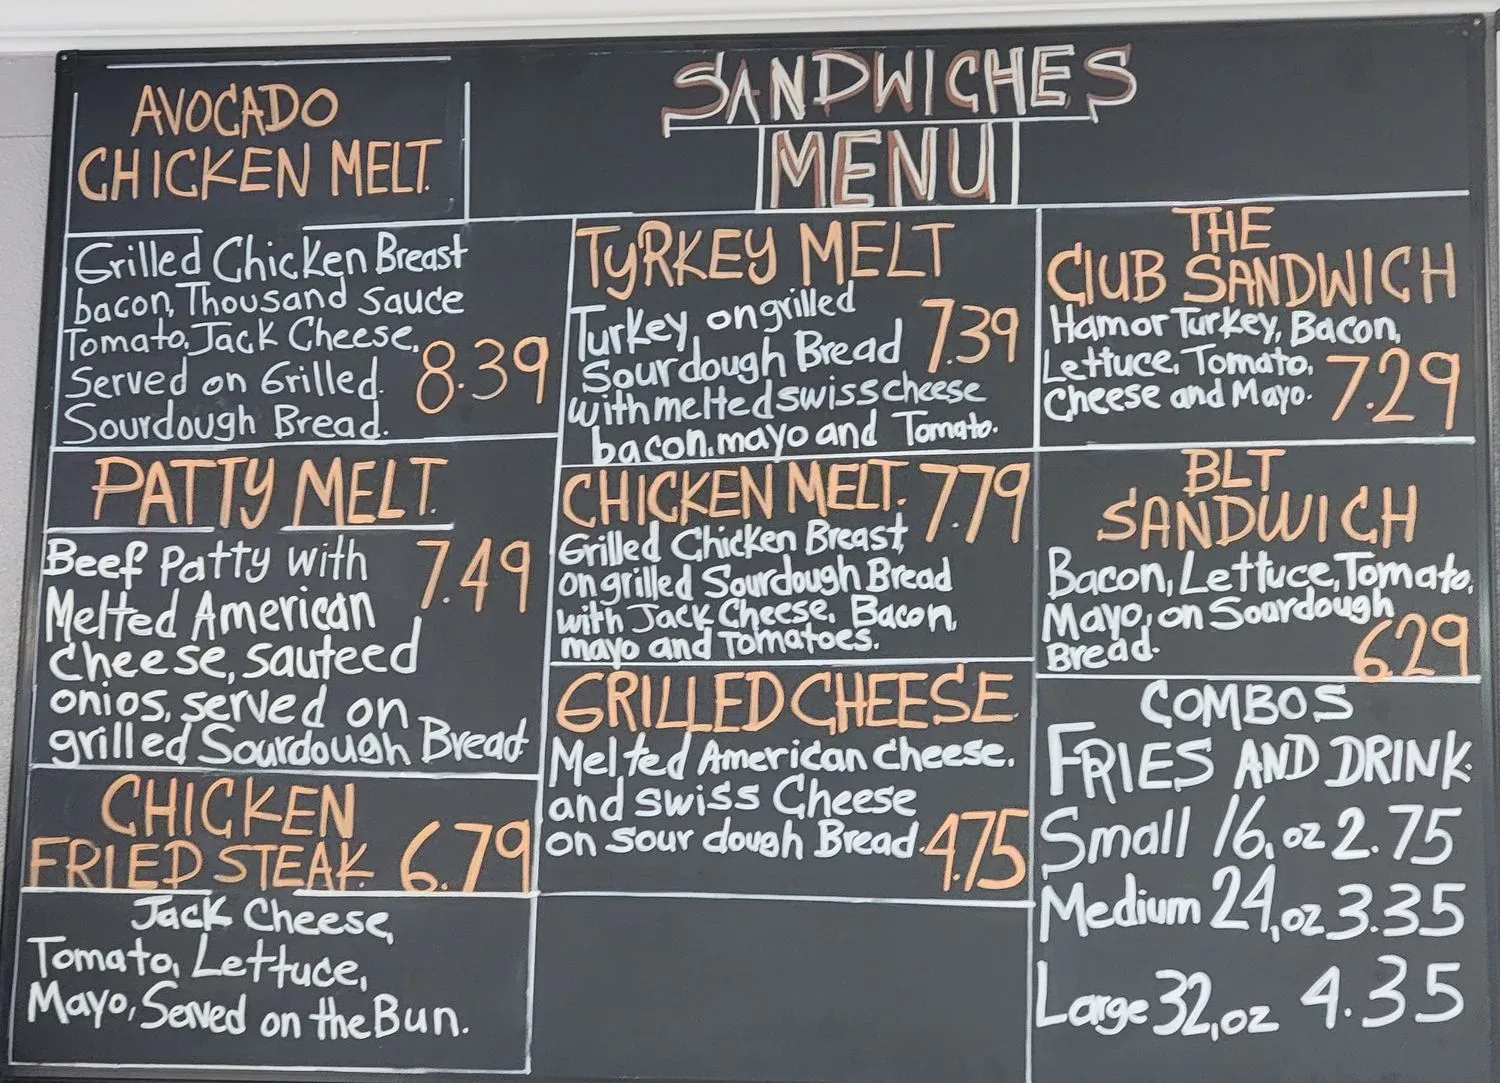 SANDWICHES
MENU
AVOCADO
CHICKEN MELT.
Grilled Chicken Breast
bacon, Thousand sauce
Tomato, Jack Cheese,
Served on Grilled.
Sourdough Bread.
8.39
PATTY MELT.
Beef Patty with
Melted American
Cheese, sauteed
onios, served on
grilled Sourdough Bread
7.49
CHICKEN
FRIED STEAK. 6.79
Jack Cheese,
Tomato, Lettuce,
Mayo, Served on the Bun.
TyRKEY MELT
Turkey, on grilled
Sourdough Bread 7.39
with melted swiss cheese
bacon, mayo and Tomato.
CHICKEN MELT. 7.79
Grilled Chicken Breast,
on grilled Sourdough Bread
with Jack Cheese, Bacon,
mayo and Tomatoes.
GRILLED CHEESE
Melted American cheese.
and swiss Cheese
on sour dough Bread. 4.75
THE
CLUB SANDWICH
Ham or Turkey, Bacon,
Lettuce, Tomato,
Cheese and Mayo. 7.29
BLT
SANDWICH
Bacon, Lettuce, Tomato,
Mayo, on Sourdough
Bread. 6.29
COMBOS
FRIES AND DRINK.
Small 16, oz 2.75
Medium 24, oz 3.35
Large 32, oz 4.35